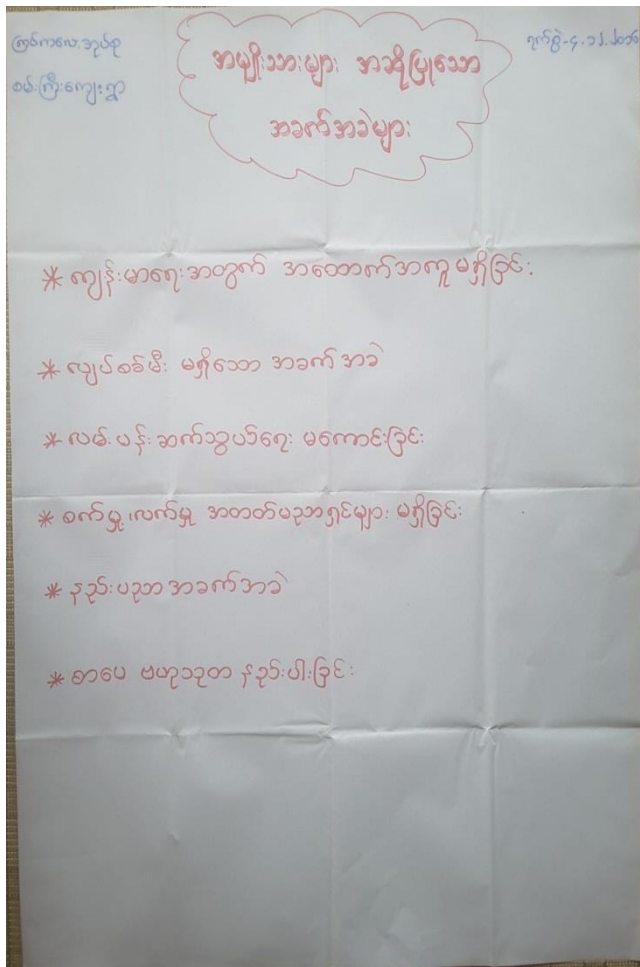 ကြပ်ကလေ.အုပ်စု
စမ်းကြီးကျေးရွာ
ရက်စွဲ-၄.၁၂.၂၀၁၀
အမျိုးသားများ အဆိုပြုသော
အခက်အခဲများ
* ကျန်းမာရေးအတွက် အထောက်အကူမရှိခြင်း
* လျှပ်စစ်မီး မရှိသော အခက်အခဲ
* လမ်းပန်းဆက်သွယ်ရေး မကောင်းခြင်း
* စက်မှု၊လက်မှု အတတ်ပညာရှင်များ မရှိခြင်း
* နည်းပညာအခက်အခဲ
* စာပေ ဗဟုသုတ နည်းပါးခြင်း